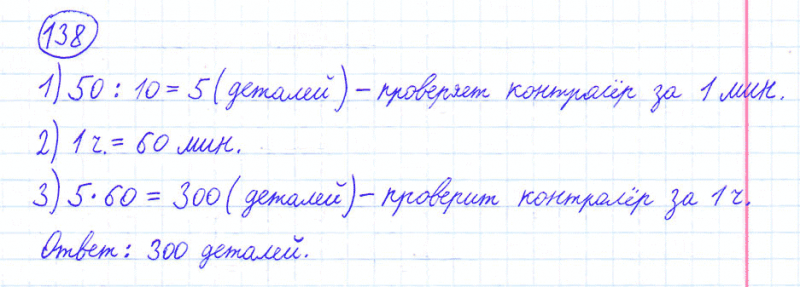 138
1) 50 : 10 = 5 (деталей) – проверяет контралёр за 1 мин.
2) 1 ч. = 60 мин.
3) 5 · 60 = 300 (деталей) – проверит контралёр за 1 ч.
Ответ: 300 деталей.